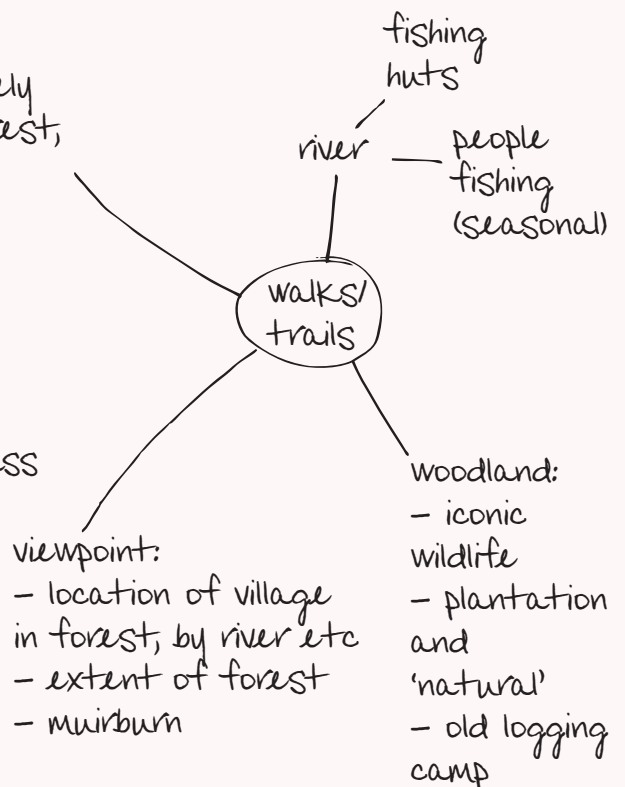 fishing
huts
river
people
fishing
(seasonal)
walks/
trails
viewpoint:
– location of village
in forest, by river etc
– extent of forest
– muirburn
woodland:
– iconic
wildlife
– plantation
and
'natural'
– old logging
camp